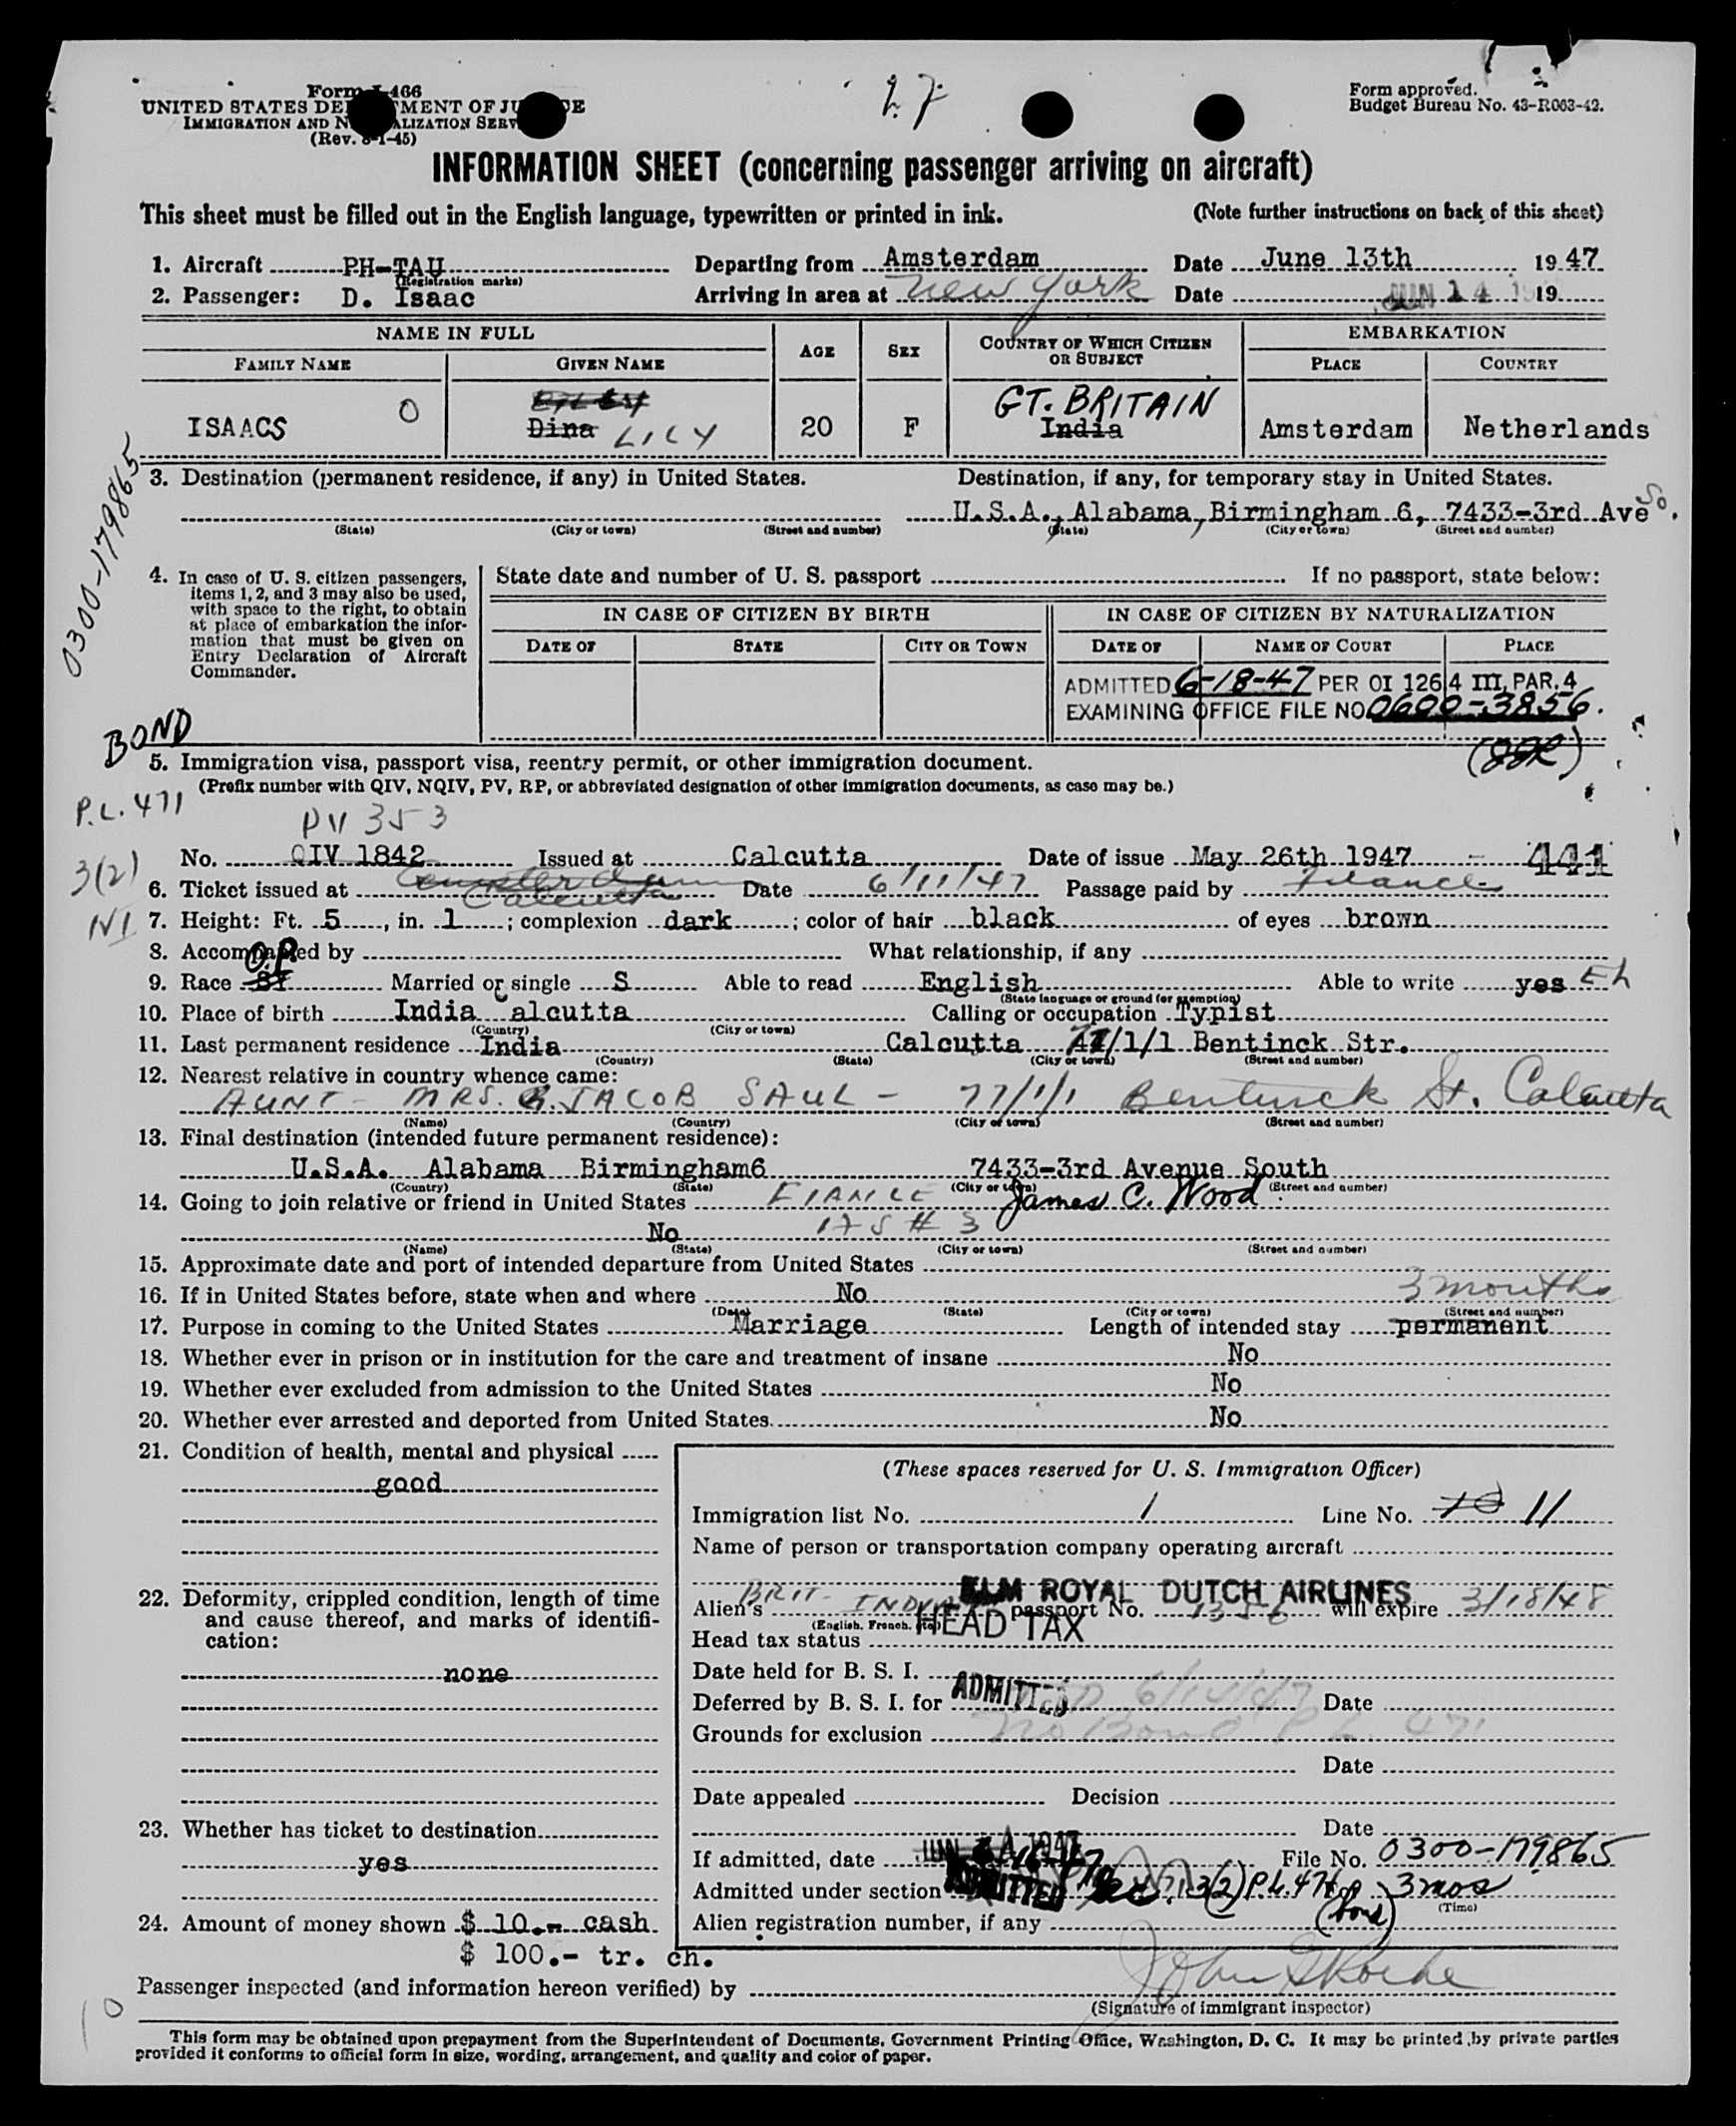 27
Form I-466
UNITED STATES DEPARTMENT OF JUSTICE
IMMIGRATION AND NATURALIZATION SERVICE
(Rev. 8-1-45)
Form approved.
Budget Bureau No. 43-R063-42.
INFORMATION SHEET (concerning passenger arriving on aircraft)
This sheet must be filled out in the English language, typewritten or printed in ink. (Note further instructions on back of this sheet)
1. Aircraft PH-TAU Departing from Amsterdam Date June 13th 1947
(Registration marks)
2. Passenger: D. Isaac Arriving in area at New York Date JUN 14 19
NAME IN FULL AGE SEX COUNTRY OF WHICH CITIZEN OR SUBJECT EMBARKATION
FAMILY NAME GIVEN NAME PLACE COUNTRY
GT. BRITAIN
ISAACS O Dina LILY 20 F India Amsterdam Netherlands
0300-179865
3. Destination (permanent residence, if any) in United States. Destination, if any, for temporary stay in United States.
U.S.A., Alabama, Birmingham 6, 7433-3rd Ave So.
(State) (City or town) (Street and number) (State) (City or town) (Street and number)
4. In case of U. S. citizen passengers, items 1, 2, and 3 may also be used, with space to the right, to obtain at place of embarkation the information that must be given on Entry Declaration of Aircraft Commander.
State date and number of U. S. passport If no passport, state below:
IN CASE OF CITIZEN BY BIRTH IN CASE OF CITIZEN BY NATURALIZATION
DATE OF STATE CITY OR TOWN DATE OF NAME OF COURT PLACE
ADMITTED 6-18-47 PER OI 1264 III, PAR. 4
EXAMINING OFFICE FILE NO 0600-3856.
BOND
5. Immigration visa, passport visa, reentry permit, or other immigration document.
(Prefix number with QIV, NQIV, PV, RP, or abbreviated designation of other immigration documents, as case may be.)
P.L. 471
PV 353
No. QIV 1842 Issued at Calcutta Date of issue May 26th 1947 441
3(2)
6. Ticket issued at Calcutta Date 6/11/47 Passage paid by Fiance
NI
7. Height: Ft. 5, in. 1; complexion dark; color of hair black of eyes brown
8. Accompanied by What relationship, if any
9. Race O.P. Married or single S Able to read English Able to write yes Eh
(State language or ground for exemption)
10. Place of birth India Calcutta Calling or occupation Typist
(Country) (City or town)
11. Last permanent residence India Calcutta 77/1/1 Bentinck Str.
(Country) (State) (City or town) (Street and number)
12. Nearest relative in country whence came:
AUNT - MRS. JACOB SAUL - 77/1/1 Bentinck St. Calcutta
(Name) (Country) (City or town) (Street and number)
13. Final destination (intended future permanent residence):
U.S.A. Alabama Birmingham6 7433-3rd Avenue South
(Country) (State) (City or town) (Street and number)
14. Going to join relative or friend in United States FIANCE James C. Wood
No AS # 3
(Name) (State) (City or town) (Street and number)
15. Approximate date and port of intended departure from United States
16. If in United States before, state when and where No 3 months
(Date) (State) (City or town) (Street and number)
17. Purpose in coming to the United States Marriage Length of intended stay permanent
18. Whether ever in prison or in institution for the care and treatment of insane No
19. Whether ever excluded from admission to the United States No
20. Whether ever arrested and deported from United States No
21. Condition of health, mental and physical
good
22. Deformity, crippled condition, length of time and cause thereof, and marks of identification:
none
23. Whether has ticket to destination
yes
24. Amount of money shown $ 10.- cash
$ 100.- tr. ch.
(These spaces reserved for U. S. Immigration Officer)
Immigration list No. 1 Line No. 10 11
Name of person or transportation company operating aircraft
KLM ROYAL DUTCH AIRLINES
Alien's BRIT- INDIA passport No. 1356 will expire 3/18/48
(English, French, etc.)
Head tax status HEAD TAX
Date held for B. S. I.
Deferred by B. S. I. for ADMITTED 6/14/47 Date
Grounds for exclusion No Bond P L. 471
Date
Date appealed Decision
Date
If admitted, date JUN 1947 File No. 0300-179865
Admitted under section ADMITTED Sec. 3(2) P.L. 471 for 3 mos
(bond) (Time)
Alien registration number, if any
Passenger inspected (and information hereon verified) by
(Signature of immigrant inspector)
10
This form may be obtained upon prepayment from the Superintendent of Documents, Government Printing Office, Washington, D. C. It may be printed by private parties
provided it conforms to official form in size, wording, arrangement, and quality and color of paper.